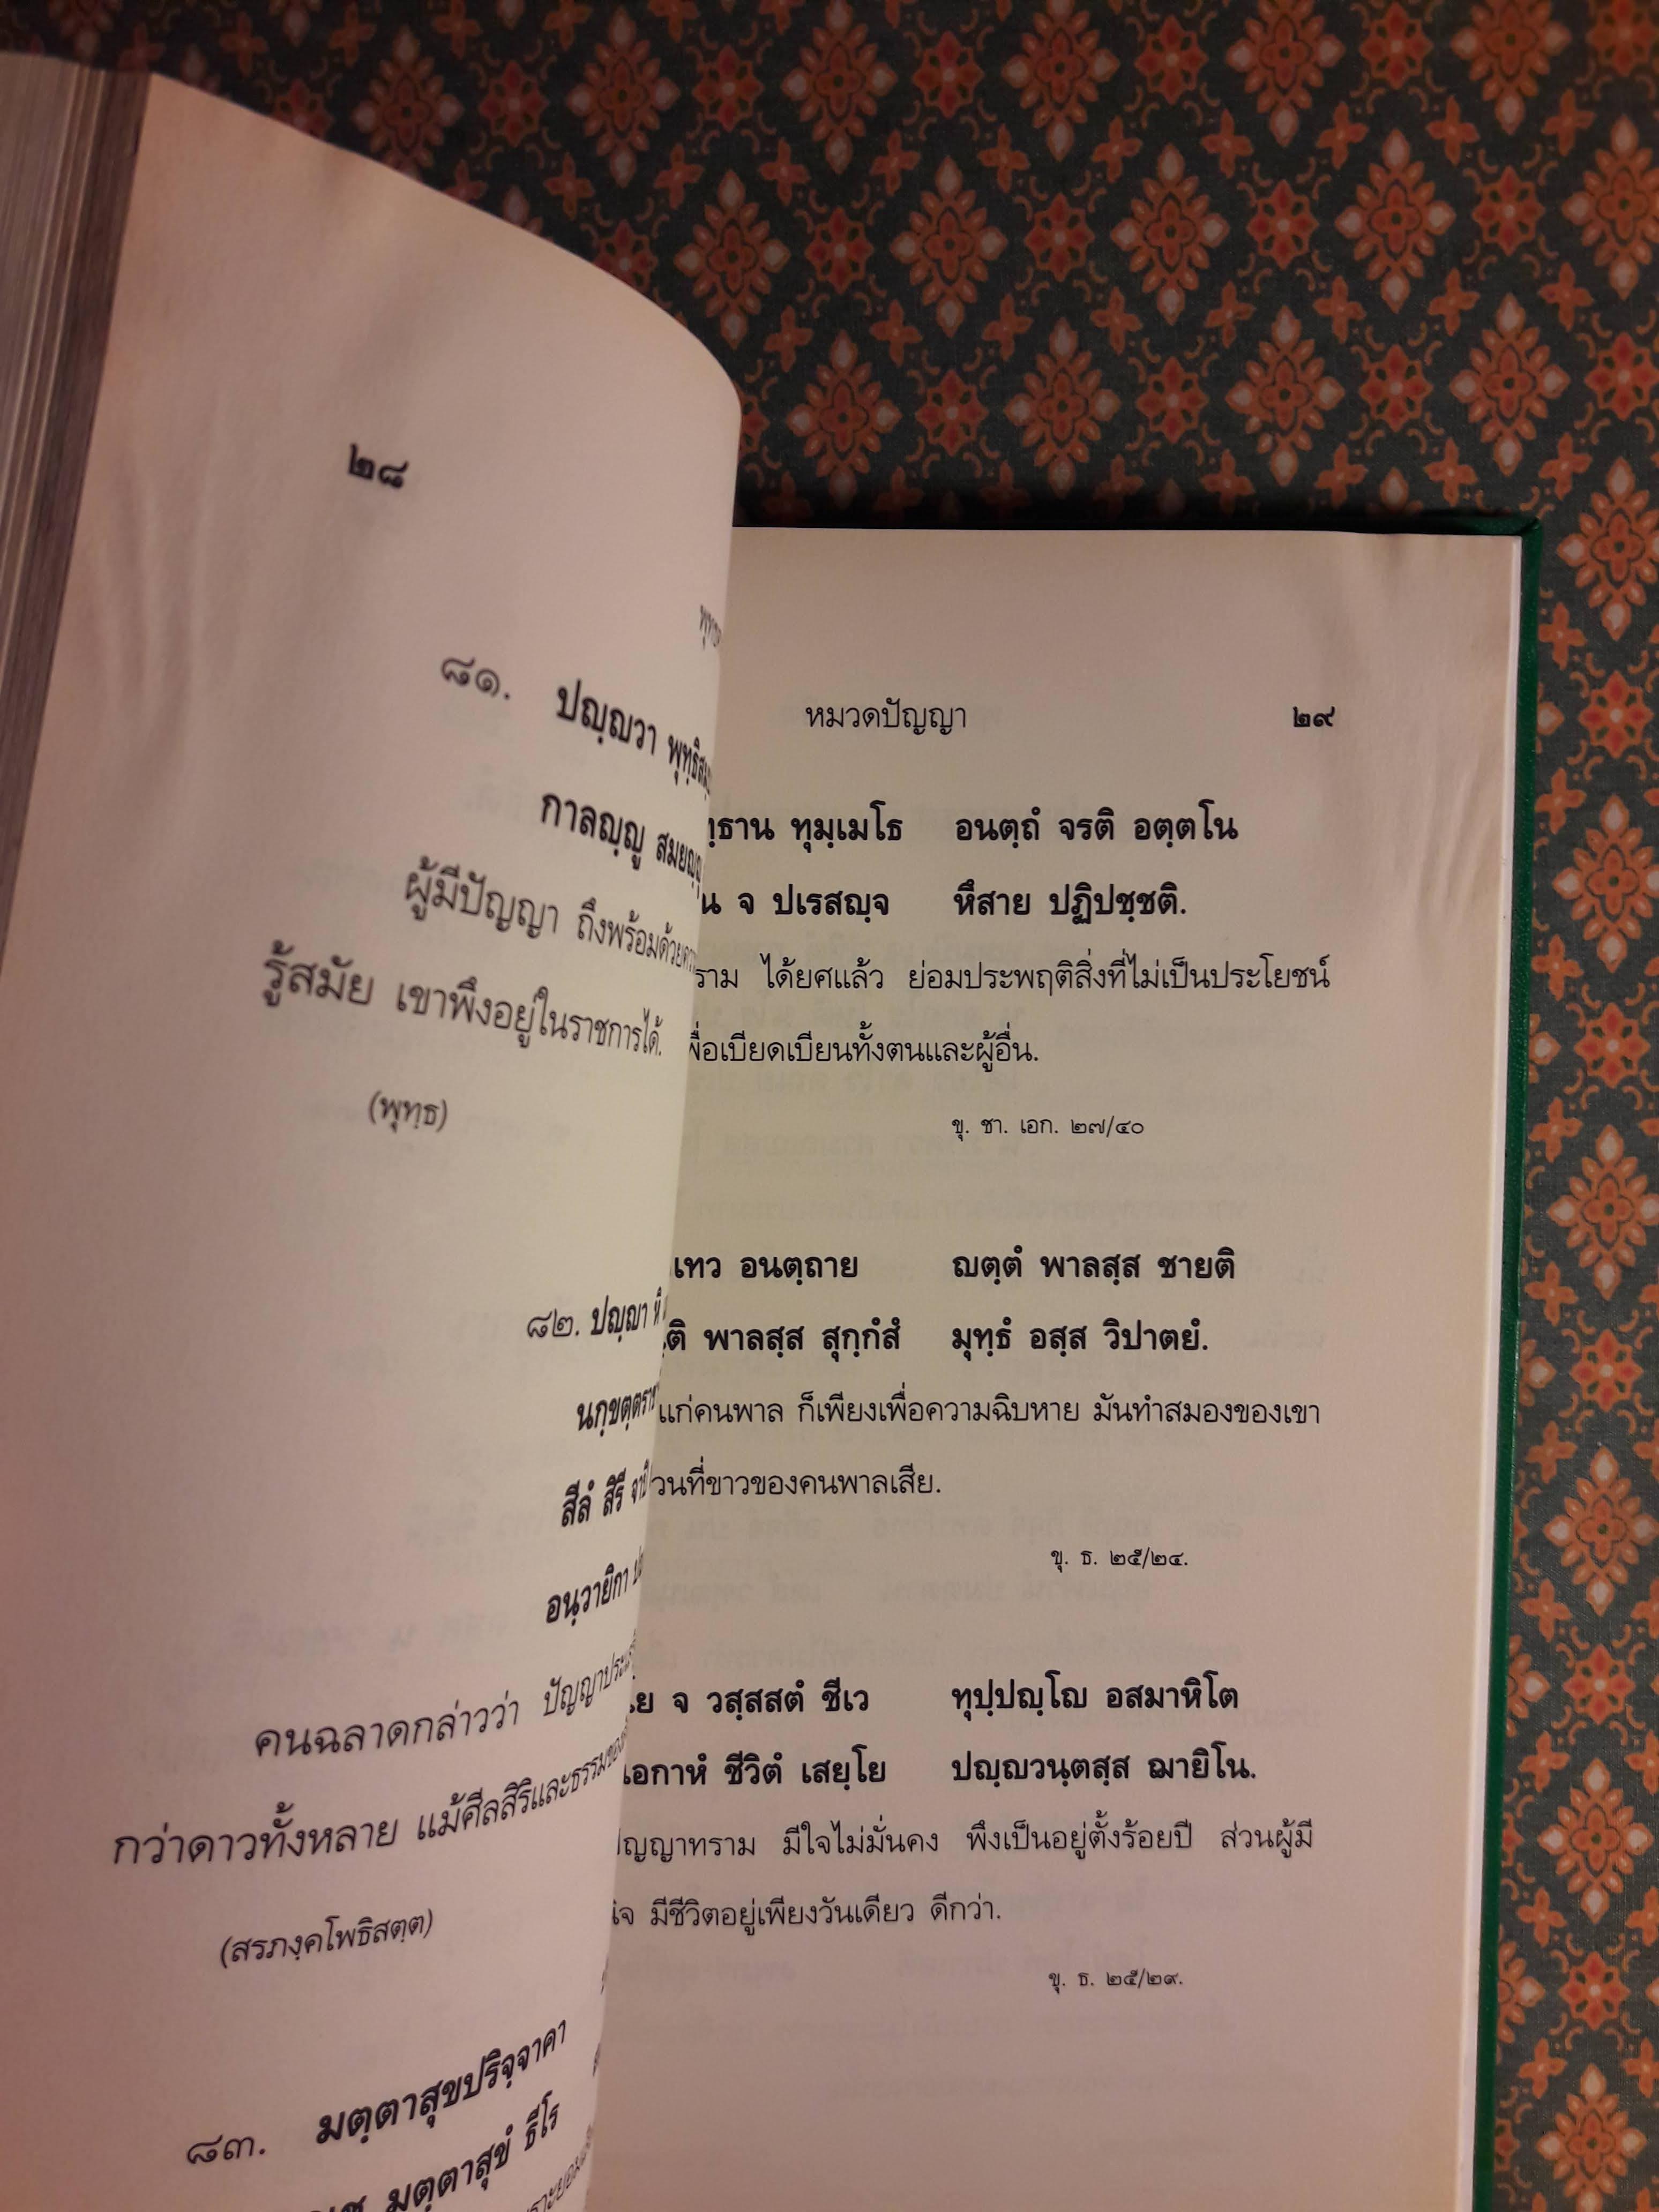 ๒๘
๘๑. ปญฺญวา
กาลญฺญู
ผู้มีปัญญา ถึงพร้อมด้วย
รู้สมัย เขาพึงอยู่ในราชการได้.
(พุทฺธ)
๘๒. ปญฺญา หิ
นกฺขตฺตราช
สีลํ สิรี
อนฺวายิกา
คนฉลาดกล่าวว่า ปัญญาประเสริฐ
กว่าดาวทั้งหลาย แม้ศีลสิริและธรรมของ
(สรภงฺคโพธิสตฺต)
๘๓. มตฺตาสุขปริจฺจาคา
มตฺตาสุขํ ธีโร
หมวดปัญญา ๒๙
ทฺธาน ทุมฺเมโธ อนตฺถํ จรติ อตฺตโน
จ ปเรสญฺจ หึสาย ปฏิปชฺชติ.
ราม ได้ยศแล้ว ย่อมประพฤติสิ่งที่ไม่เป็นประโยชน์
พื่อเบียดเบียนทั้งตนและผู้อื่น.
ขุ. ชา. เอก. ๒๗/๔๐
เทว อนตฺถาย ญตฺตํ พาลสฺส ชายติ
ติ พาลสฺส สุกฺกํสํ มุทฺธํ อสฺส วิปาตยํ.
แก่คนพาล ก็เพียงเพื่อความฉิบหาย มันทำสมองของเขา
วนที่ขาวของคนพาลเสีย.
ขุ. ธ. ๒๕/๒๔.
ย จ วสฺสสตํ ชีเว ทุปฺปญฺโญ อสมาหิโต
เอกาหํ ชีวิตํ เสยฺโย ปญฺญวนฺตสฺส ฌายิโน.
ปัญญาทราม มีใจไม่มั่นคง พึงเป็นอยู่ตั้งร้อยปี ส่วนผู้มี
จ มีชีวิตอยู่เพียงวันเดียว ดีกว่า.
ขุ. ธ. ๒๕/๒๙.